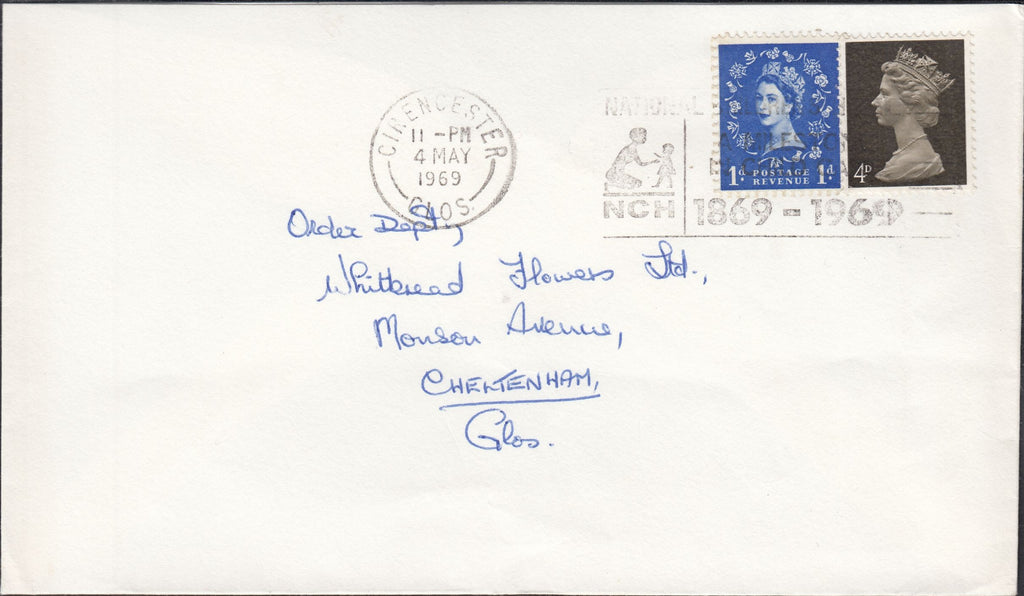 CIRENCESTER
11 - PM
4 MAY
1969
GLOS.
NATIONAL
NCH
1869 - 1969
1d. POSTAGE REVENUE 1d.
4D
Order Dept,
Whitbread Flowers Ltd.,
Monson Avenue,
CHELTENHAM,
Glos.